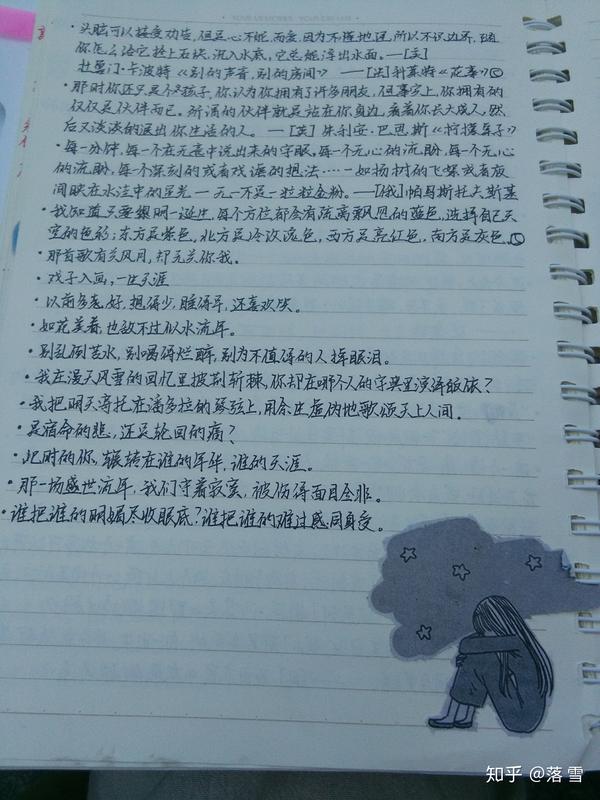 ·头脑可以接受劝告,但是心不能,而爱,因为不懂地理,所以不识边界,随
你怎么给它拴上石块,沉入水底,它总能浮出水面。——[美]
杜鲁门·卡波特《别的声音,别的房间》 ——[法]科莱特《花事》
·那时你还只是个孩子,你以为你拥有了许多朋友,但事实上,你拥有的
仅仅是伙伴而已。所谓的伙伴就是站在你身边,看着你长大成人,然
后又淡淡的退出你生活的人。——[英]朱利安·巴恩斯《柠檬桌子》
·每一分钟,每一个在无意中说出来的字眼,每一个无心的流盼,每一个
的流盼,每一个深刻的或者戏谑的想法……一如杨树的飞蝶或者夜
间映在水洼中的星光——无一不是一粒粒金粉。——[俄]帕乌斯托夫斯基
·我知道只要黎明一诞生,每个方位都会有疏离飘忽的蓝色,选择自己天
空的色彩:东方是紫色,北方是冷淡流色,西方是亮红色,南方是灰色。
·那首歌有关风月,却无关你我。
·戏子入画,一生天涯
·以前多么好,想得少,睡得早,还喜欢笑。
·如花美眷,也敌不过似水流年。
·别乱倒苦水,别喝得烂醉,别为不值得的人掉眼泪。
·我在漫天风雪的回忆里披荆斩棘,你却在哪个人的字典里演绎皈依?
·我把明天寄托在潘多拉的琴弦上,用余生虚伪地歌颂天上人间。
·是宿命的悲,还是轮回的痛?
·此时的你,辗转在谁的年华,谁的天涯。
·那一场盛世流年,我们守着寂寞,被伤得面目全非。
·谁把谁的明媚尽收眼底?谁把谁的难过感同身受。
知乎 @落雪